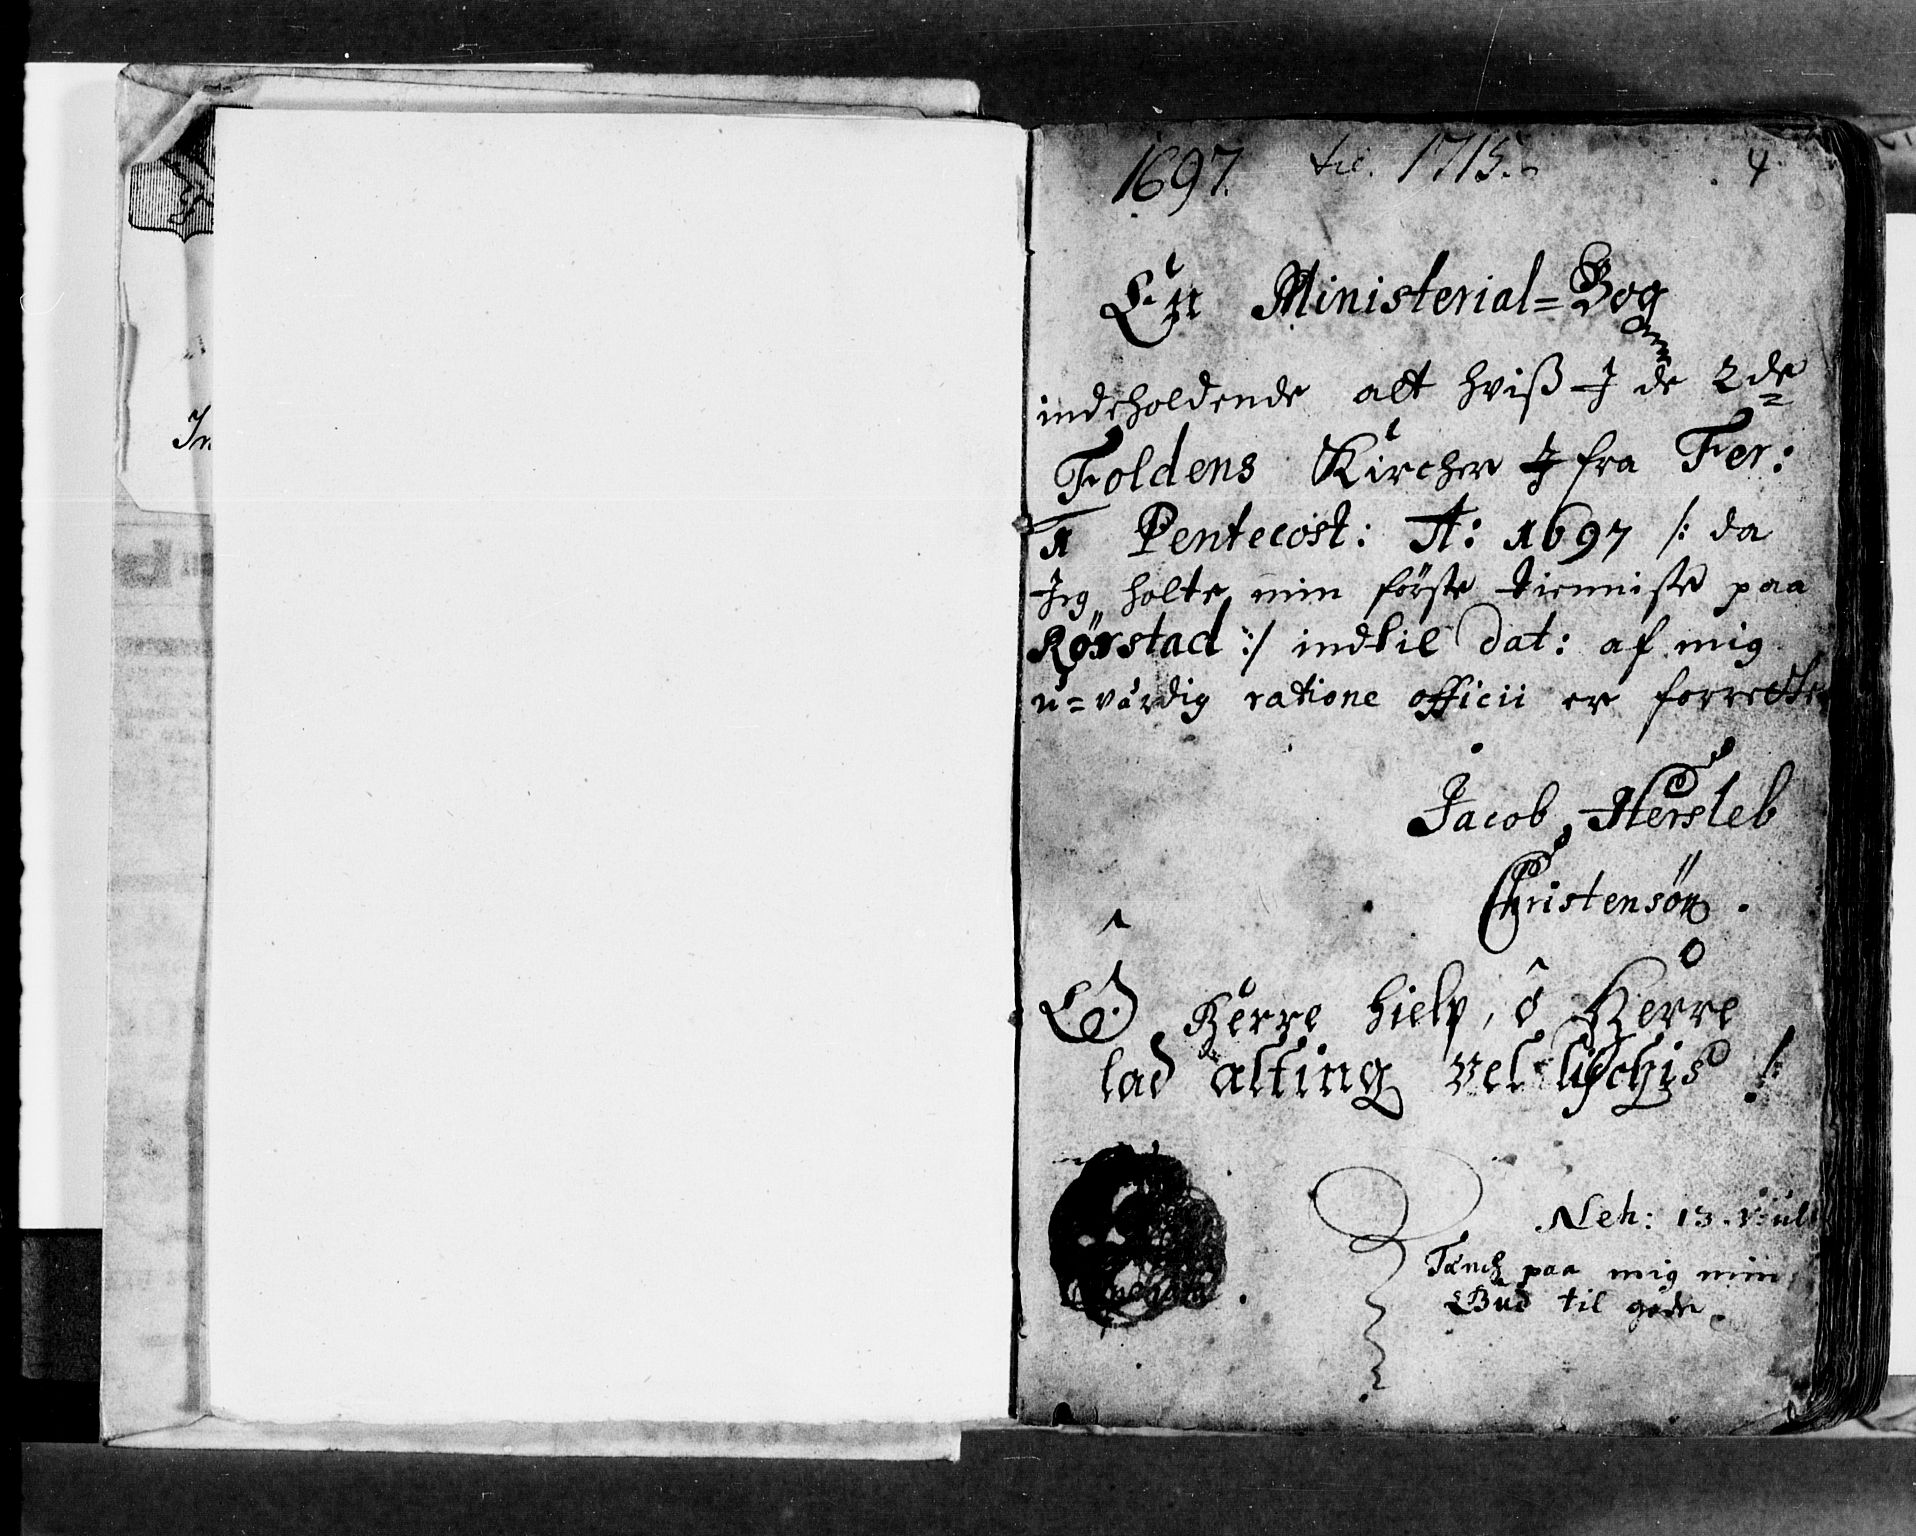 1697. til. 1715.
4
En Ministerial=Bog
indeholdende alt hviß I de 2de
Foldens Kircher I fra Fer:
1 Pentecost: A: 1697 /: da
Jeg holte min förste tienniste paa
Rörstad :/ indtil dat: af mig
u=værdig ratione officii er forrettet
Jacob Hersleb
Christensön.
O Herre hielp, ô Herre
lad alting vel lychis!
Neh: 13. v: ult
Tænch paa mig min
Gud til gode.
In